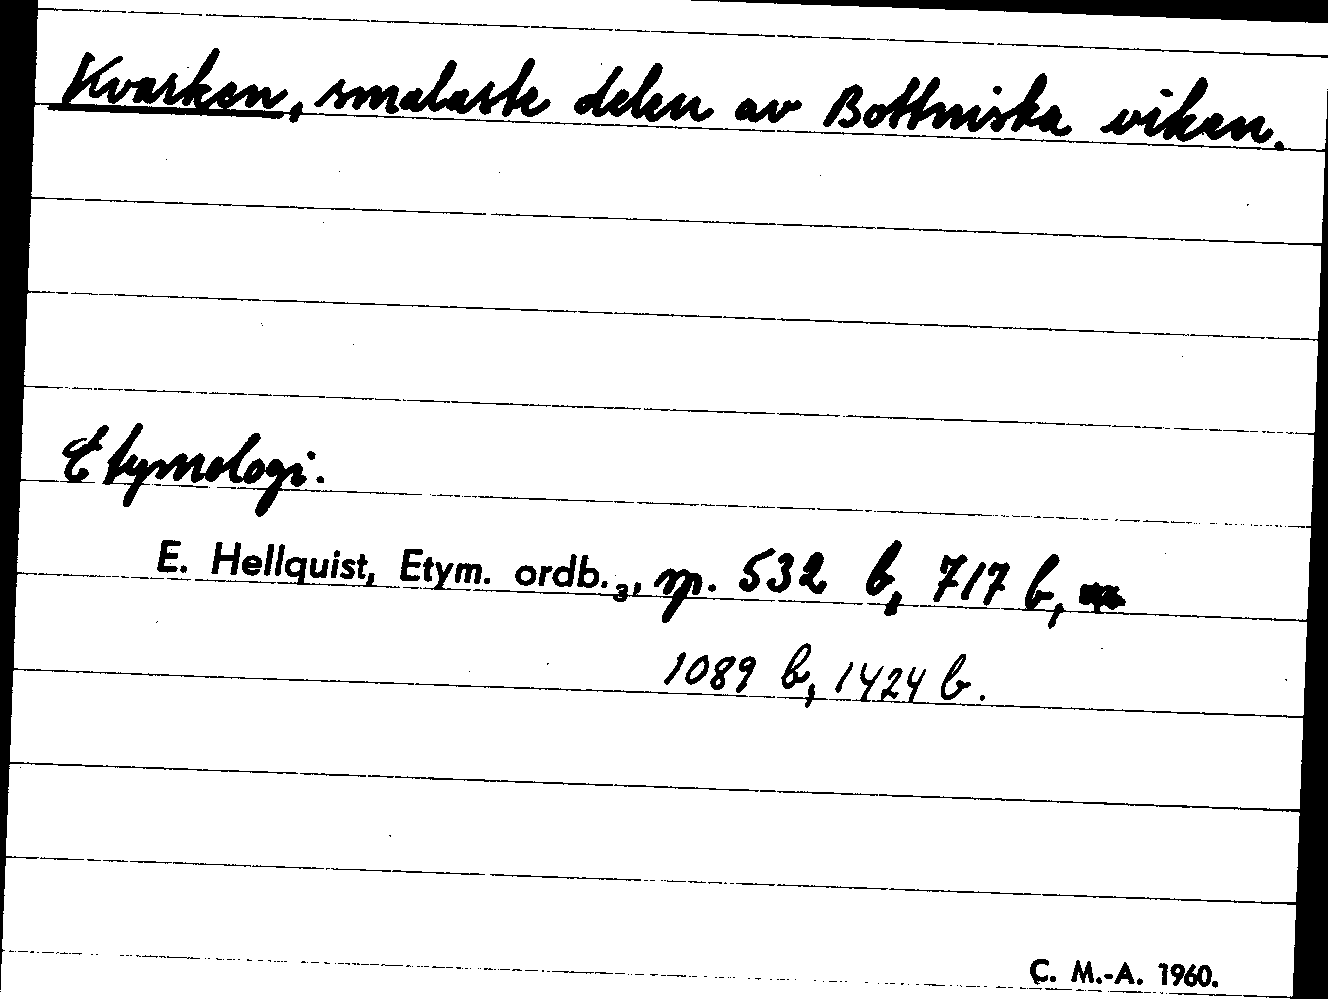 Kvarken, smalaste delen av Bottniska viken.
Etymologi.
E. Hellquist, Etym. ordb.₃, sp. 532 b, 717 b,
1089 b, 1424 b.
C. M.-A. 1960.